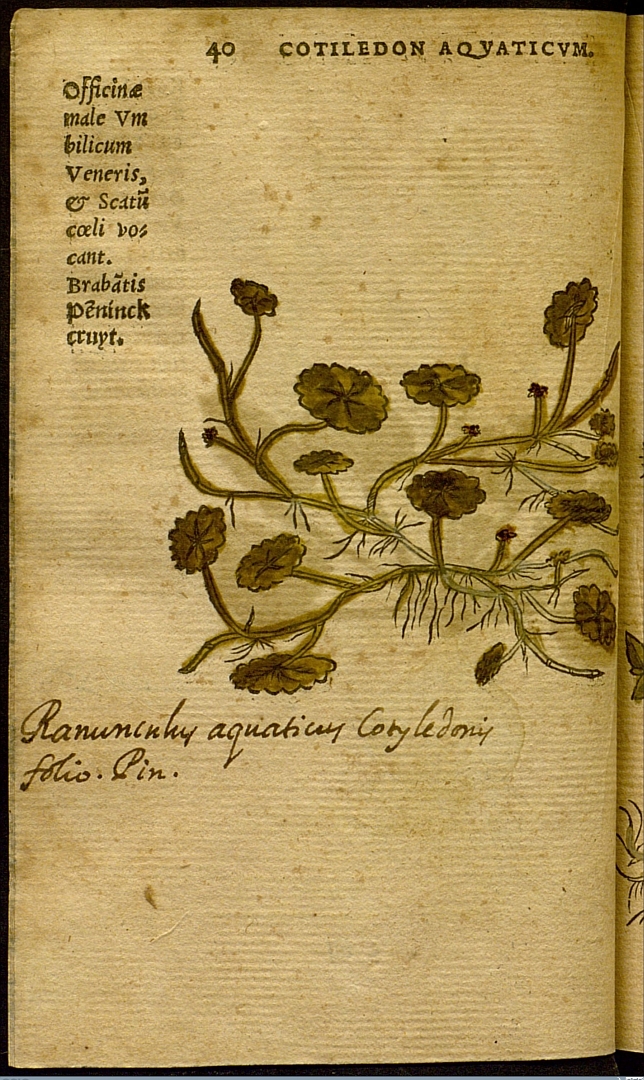 40 COTILEDON AQVATICVM.
Officinæ
male Vm
bilicum
Veneris,
& Scatū
cœli vo⸗
cant.
Brabātis
Pēninck
cruyt.
Ranunculus aquaticus Cotyledonis
folio. Pin.